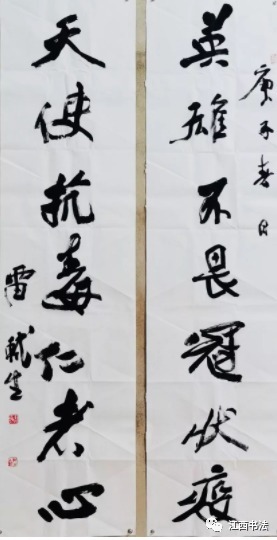 庚子春日
英雄不畏冠状疫
天使抗毒仁者心
雷
江西书法